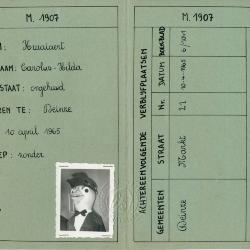 M. 1907
M: Kwaiaert
AAM: Carolus-Hilda
STAAT: ongehuwd
REN TE: Deinze
10 april 1965
EP: zonder
M. 1907
ACHTEREENVOLGENDE VERBLYFPLAATSEN
GEMEENTEN STRAAT Nr. DATUM BOEK-BLAD
Deinze Markt 21 10-4-1965